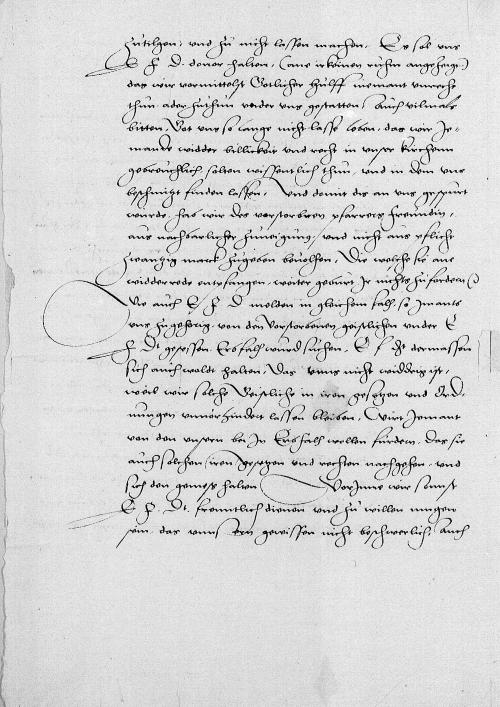 zutilgen, und zu nicht lassen machen, Es sol uns
E F D. dovor halten, (ane irkeinen ruhm angesagt)
das wir vormittelst Gotlicher hulff niemant unrecht
thun, ader zuthun weder uns gestatten, Auch vilmals
bitten, Got uns so lange nicht lasse leben, das wir Je-
mands widder billickeit und recht in unser kirchenn
gebreuchlich, solten wissentlich thun, und in dem uns
beschmitzt finden lassen, Und domit dis an uns gespurt
wurde, hab wir des vorstorbnen pfarrers freundin,
aus nachbarlicher zuneigung, und nicht aus pflicht
zwantzig marck zugeben bevolhen, Die welche sie ane
widderrede entpfangen, weiter geburt Jr nichts zufordern
Wie auch E F D melden in gleichem fall, so Jmants
uns zugehorig, von den vorstorbenen geistlichen under E
F Dt gesessen, Erbfall wurd suchen, E f Dt dermassen
sich auch woldt halten, Das uns nicht widderig ist,
weil wir solche Geistliche in iren gesetzen und Ord-
nungen unvorhindert lassen bleiben, Wirt Jemant
von den unsern bei Jn Erbfall wollen furdern, das sie
auch solchen iren gesetzen und rechten nachgehen, und
sich den gemess halten Worinne wir sonst
E F Dt. freuntlich dienen und zu willen mugen
sein, das unns kein gewissen nicht beschwerlich, Auch